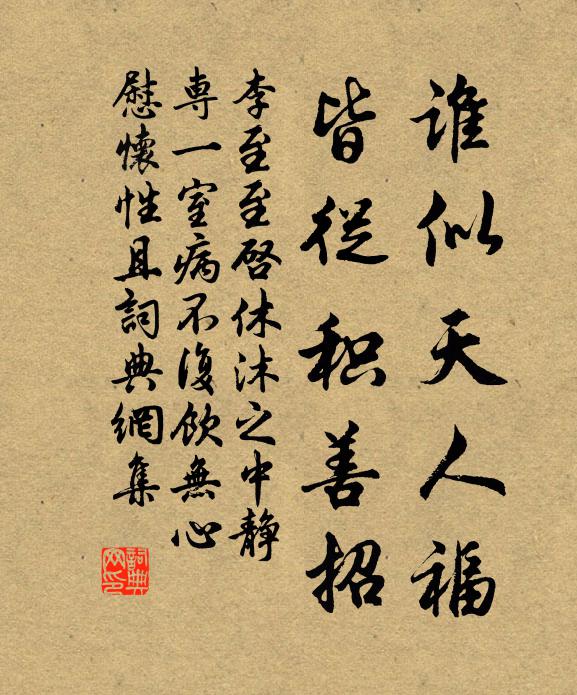 谁似天人福
皆從积善招
李至至啓休沐之中靜
專一室病不復飲無心
慰懷性且詞典網集
詞典
网印